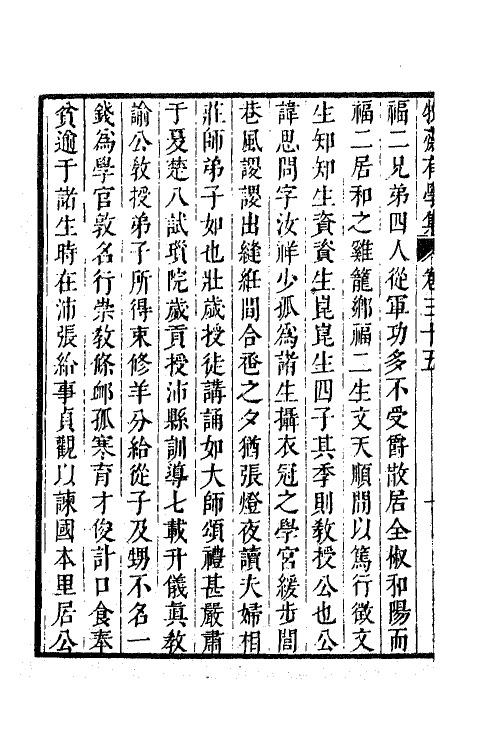 牧齋有學集 卷三十五
福二兄弟四人從軍功多不受爵散居全椒和陽而
福二居和之雞籠鄉福二生文天順間以篤行徵文
生知知生資資生崑崑生四子其季則教授公也公
諱思問字汝祥少孤為諸生攝衣冠之學宮緩步閭
巷風謖謖出縫絍間合卺之夕猶張燈夜讀夫婦相
莊師弟子如也壯歲授徒講誦如大師頌禮甚嚴肅
于夏楚八試瑣院歲貢授沛縣訓導七載升儀眞教
諭公教授弟子所得束修羊分給從子及甥不名一
錢為學官敦名行崇教條䘏孤寒育才俊計口食奉
貧逾于諸生時在沛張給事貞觀以諫國本里居公